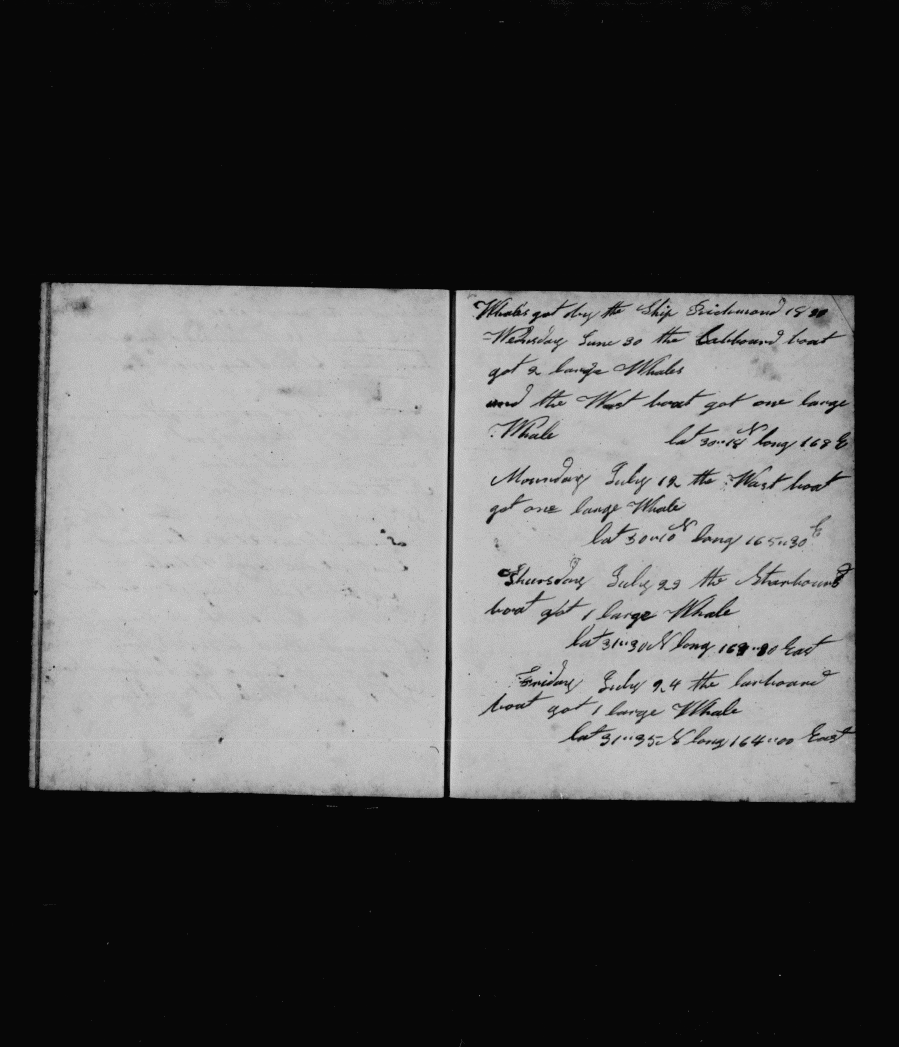 Whales got by the Ship Richmond 18
Wednsday June 30 the Labbourd boat
got 2 large Whales
and the Wast boat got one large
Whale lat 30"18 N long 168 E
Mounday July 12 the Wast boat
got one large Whale
lat 30"10 N long 165"30 E
Thursday July 23 the Starbourd
boat got 1 large Whale
lat 31"30 N long East
Friday July 24 the larboard
boat got 1 large Whale
lat 31"35 N long 164"00 East